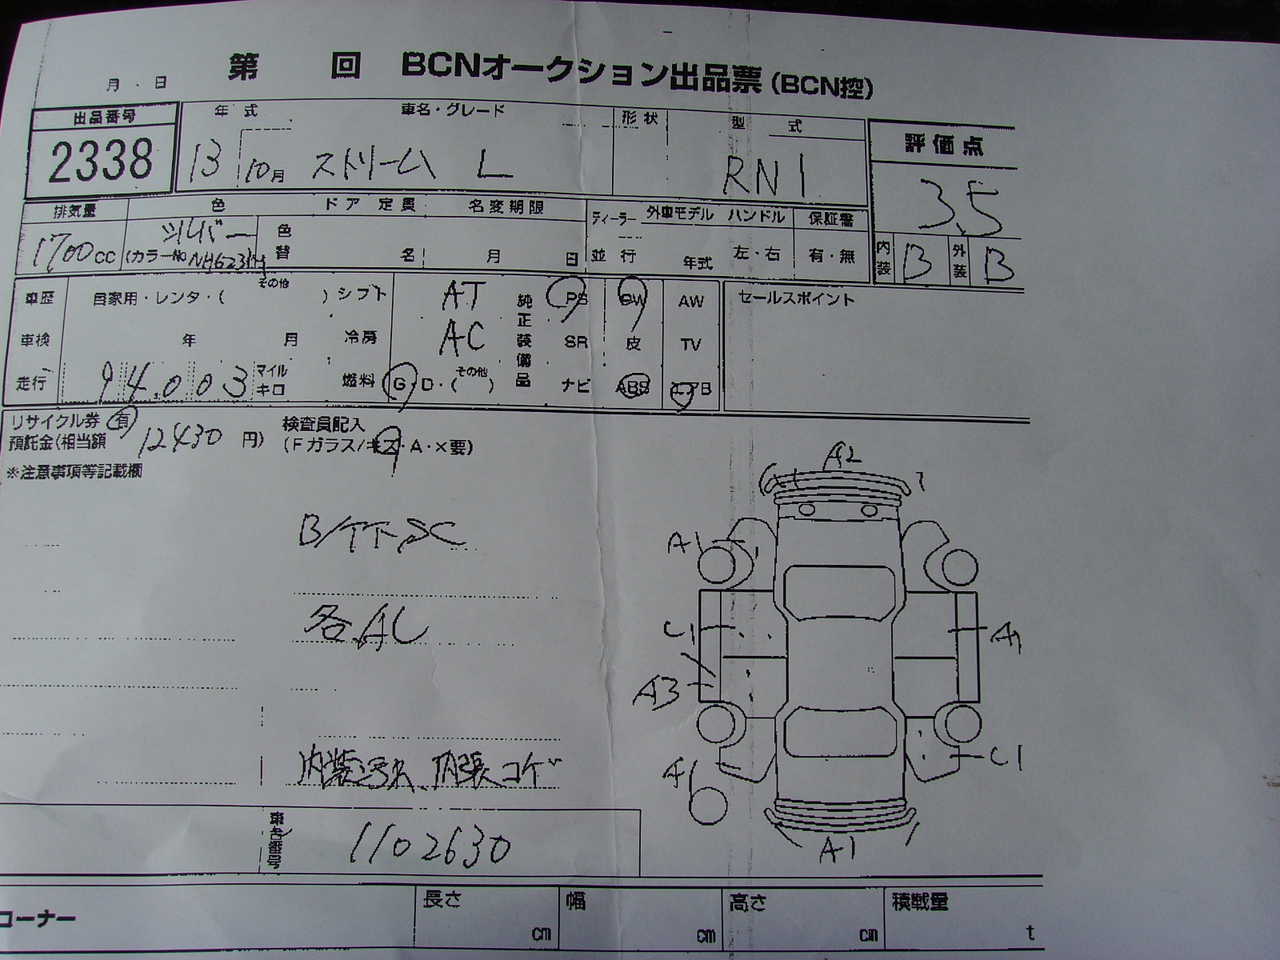 第 回 BCNオークション出品票(BCN控)
月 日
出品番号 年式 車名・グレード 形状 型式 評価点
2338 13 10月 ストリーム L RN1 3.5
排気量 色 ドア 定員 名変期限 ディーラー 外車モデル ハンドル 保証書
1700cc シルバー 色替 名 月 日 並行 年式 左・右 有・無 内装 B 外装 B
(カラーNo NH623M)
車歴 自家用・レンタ・( その他 ) シフト AT 純正装備品 PS PW AW セールスポイント
車検 年 月 冷房 AC SR 皮 TV
走行 94,003 マイル キロ 燃料 G・D・( その他 ) ナビ ABS エアB
リサイクル券 有 検査員記入
預託金(相当額 12430 円) (Fガラス/キズ・A・×要)
※注意事項等記載欄
A2
A1
各AL
C1
A1
A3
内装汚れ、内張コゲ
A1
C1
A1
車台番号 1102630
コーナー 長さ cm 幅 cm 高さ cm 積載量 t